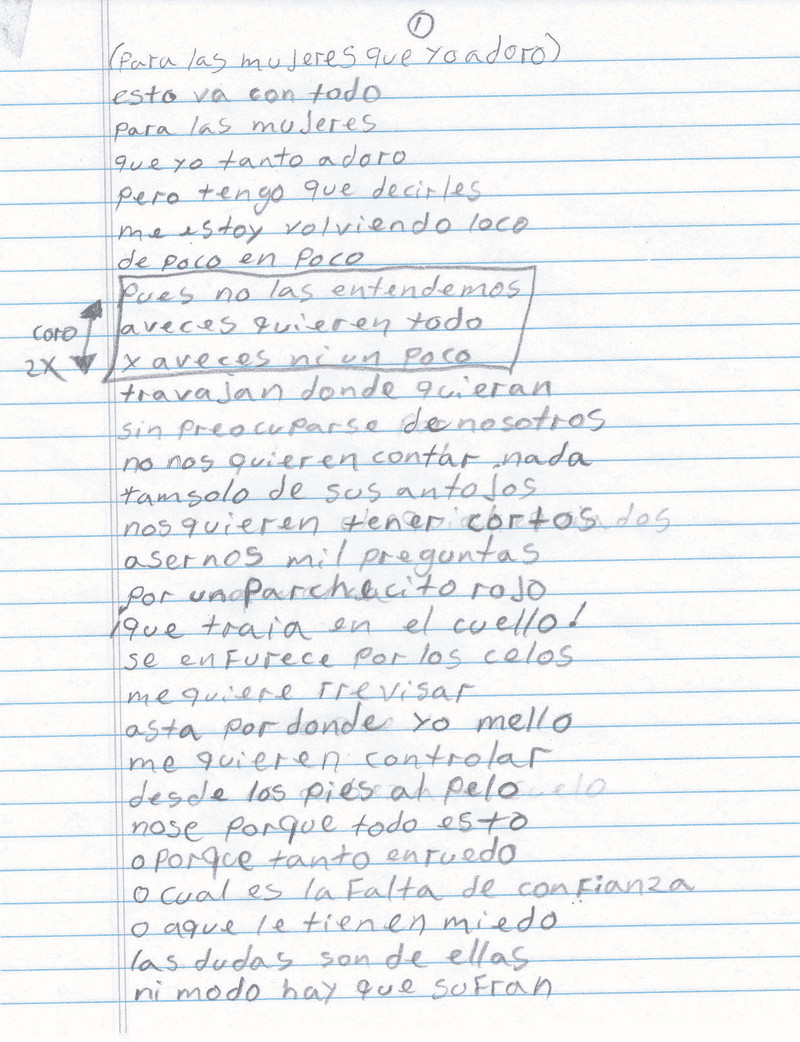 1
(para las mujeres que yo adoro)
esto va con todo
para las mujeres
que yo tanto adoro
pero tengo que decirles
me estoy volviendo loco
de poco en poco
pues no las entendemos
aveces quieren todo
coro
y aveces ni un poco
2X
travajan donde quieran
sin preocuparse de nosotros
no nos quieren contar nada
tamsolo de sus antojos
nos quieren tener cortos
asernos mil preguntas
por un parchecito rojo
¡que traia en el cuello!
se enfurece por los celos
me quiere rrevisar
asta por donde yo mello
me quieren controlar
desde los pies al pelo
nose porque todo esto
o porqce tanto enruedo
o cual es la falta de confianza
o aque le tienen miedo
las dudas son de ellas
ni modo hay que sufran